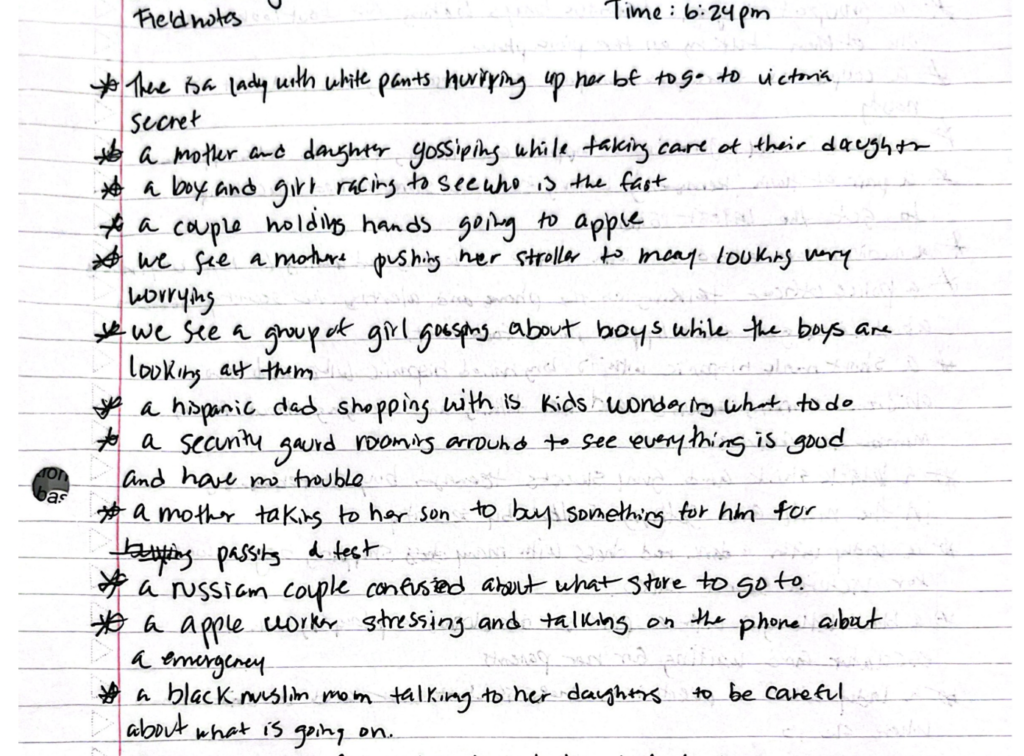 Fieldnotes Time: 6:24pm
* There is a lady with white pants hurrying up her bf to go to victoria
secret
* a mother and daughter gossiping while taking care of their daughter
* a boy and girl racing to see who is the fast
* a couple holding hands going to apple
* we see a mothere pushing her stroller to macy looking very
worrying
* we see a group of girl gossping about boys while the boys are
looking att them
* a hispanic dad shopping with is kids wondering what to do
* a security gaurd roaming arround to see everything is good
and have no trouble
* a mother taking to her son to buy something for him for
passing a test
* a russian couple confused about what store to go to.
* a apple worker stressing and talking on the phone about
a emergency
* a black muslim mom talking to her daughters to be careful
about what is going on.